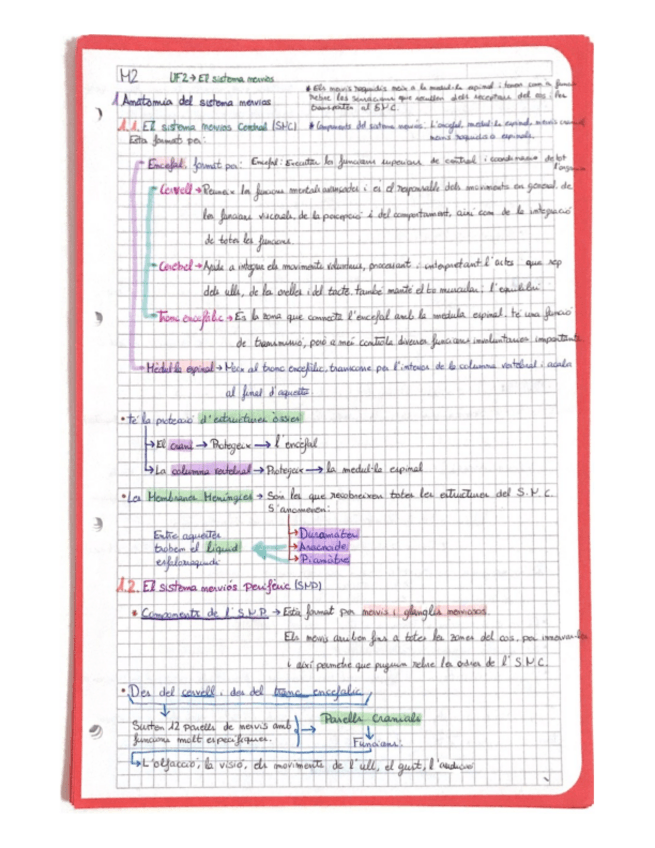 M2 UF2 → El sistema nerviós
* Els nervis raquidis neix a la medul·la espinal i tenen com a funció
rebre les sensacions que reculen dels receptors del cos. Per
transportar al SNC.
1 Anatomia del sistema nerviós
1.1. El sistema nerviós Central (SNC) * Components del sistema nerviós: L'encèfal, medul·la espinal, nervis cranials
nervis raquidis o espinals.
Esta format per:
Encefal, format per: Encefal: Executar les funcions superiors de control i coordinació de tot
l'organisme
Cervell → Reuneix les funcions mentals avançades i és el responsable dels moviments en general, de
les funcions viscerals, de la percepció i del comportament, així com de la integració
de totes les funcions.
Cerebel → Ajuda a integrar els moviments voluntaris, processant i interpretant l'estes que rep
dels ulls, de les orelles i del tacte. també manté el to muscular i l'equilibri.
Tronc encefàlic → És la zona que connecta l'encefal amb la medula espinal, té una funció
de transmissió, però a més controla diverses funcions involuntaries importants.
Medul·la espinal → Neix al tronc encefàlic, transcorre per l'interior de la columna vertebral i acaba
al final d'aquesta
• té la protecció d'estructures òssies
→ El crani → Protegeix → l'encefal
→ La columna vertebral → Protegeix → la medul·la espinal
• Les Membranes Meninges → Son les que recobreixen totes les estructures del S.N.C.
S'anomenen:
Entre aquestes → Duramàter
trobem el líquid → Aracnoide
cefaloraquidi → Piamàtre
1.2. El sistema nerviós Perifèric (SNP)
• Components de l'S.N.P → Està format per nervis i glanglis nerviosos.
Els nervis arriben fins a totes les zones del cos, per innervar-les
i així permetre que puguem rebre les ordres de l'S.N.C.
• Des del cervell i des del tronc encefalic
Surten 12 parells de nervis amb → Parells Cranials
funcions molt especifiques. Funcions:
→ L'olfacció, la visió, els moviments de l'ull, el gust, l'audició